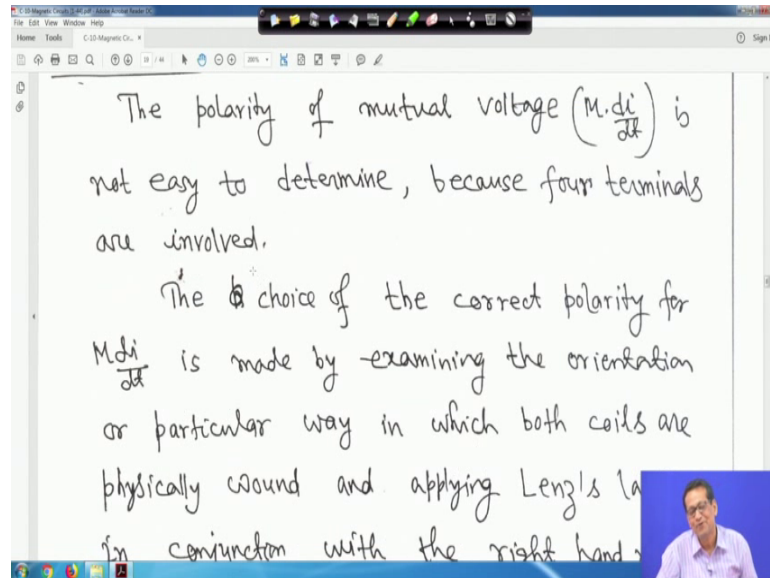 C-10-Magnetic Circuits (1-44).pdf - Adobe Acrobat Reader DC
File Edit View Window Help
Home Tools C-10-Magnetic Cir... × Sign
18 / 44 200%
The polarity of mutual voltage (M.di/dt) is
not easy to determine, because four terminals
are involved.
The choice of the correct polarity for
Mdi/dt is made by examining the orientation
or particular way in which both coils are
physically wound and applying Lenz's la
in conjunction with the right hand